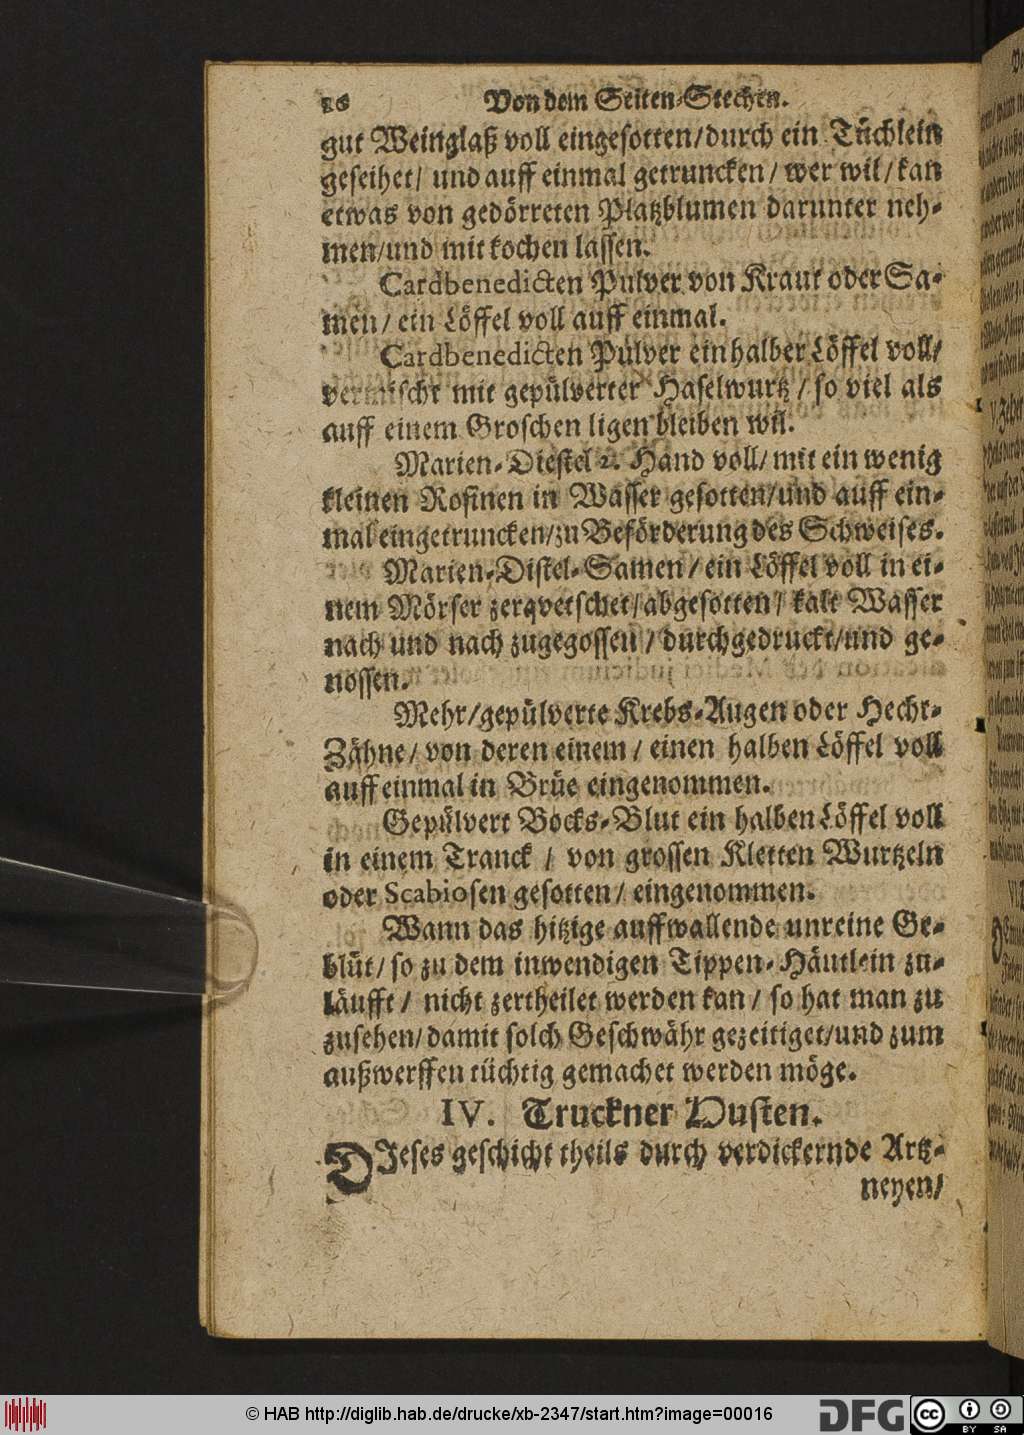 16 Von dem Seiten-Stechen.
gut Weinglaß voll eingesotten/durch ein Tüchlein
geseihet/ und auff einmal getruncken/ wer wil/ kan
etwas von gedörreten Platzblumen darunter neh-
men/und mit kochen lassen.
Cardbenedicten Pulver von Kraut oder Sa-
men/ ein Löffel voll auff einmal.
Cardbenedicten Pulver ein halber Löffel voll/
vermischt mit gepülverter Haselwurtz/ so viel als
auff einem Groschen ligen bleiben wil.
Marien-Diestel 2. Hand voll/ mit ein wenig
kleinen Rosinen in Wasser gesotten/und auff ein-
mal eingetruncken/zu Beförderung des Schweises.
Marien-Distel-Samen/ ein Löffel voll in ei-
nem Mörser zerqvetschet/abgesotten/ kalt Wasser
nach und nach zugegossen/ durchgedruckt/und ge-
nossen.
Mehr/gepülverte Krebs-Augen oder Hecht-
Zähne/ von deren einem/ einen halben Löffel voll
auff einmal in Brüe eingenommen.
Gepülvert Bocks-Blut ein halben Löffel voll
in einem Tranck/ von grossen Kletten Wurtzeln
oder Scabiosen gesotten/ eingenommen.
Wann das hitzige auffwallende unreine Ge-
blüt/ so zu dem inwendigen Tippen-Häutlein zu-
läufft/ nicht zertheilet werden kan/ so hat man zu
zusehen/damit solch Geschwähr gezeitiget/und zum
außwerffen tüchtig gemachet werden möge.
IV. Truckner Husten.
DIeses geschicht theils durch verdickernde Artz-
neyen/
© HAB http://diglib.hab.de/drucke/xb-2347/start.htm?image=00016
DFG
cc BY SA